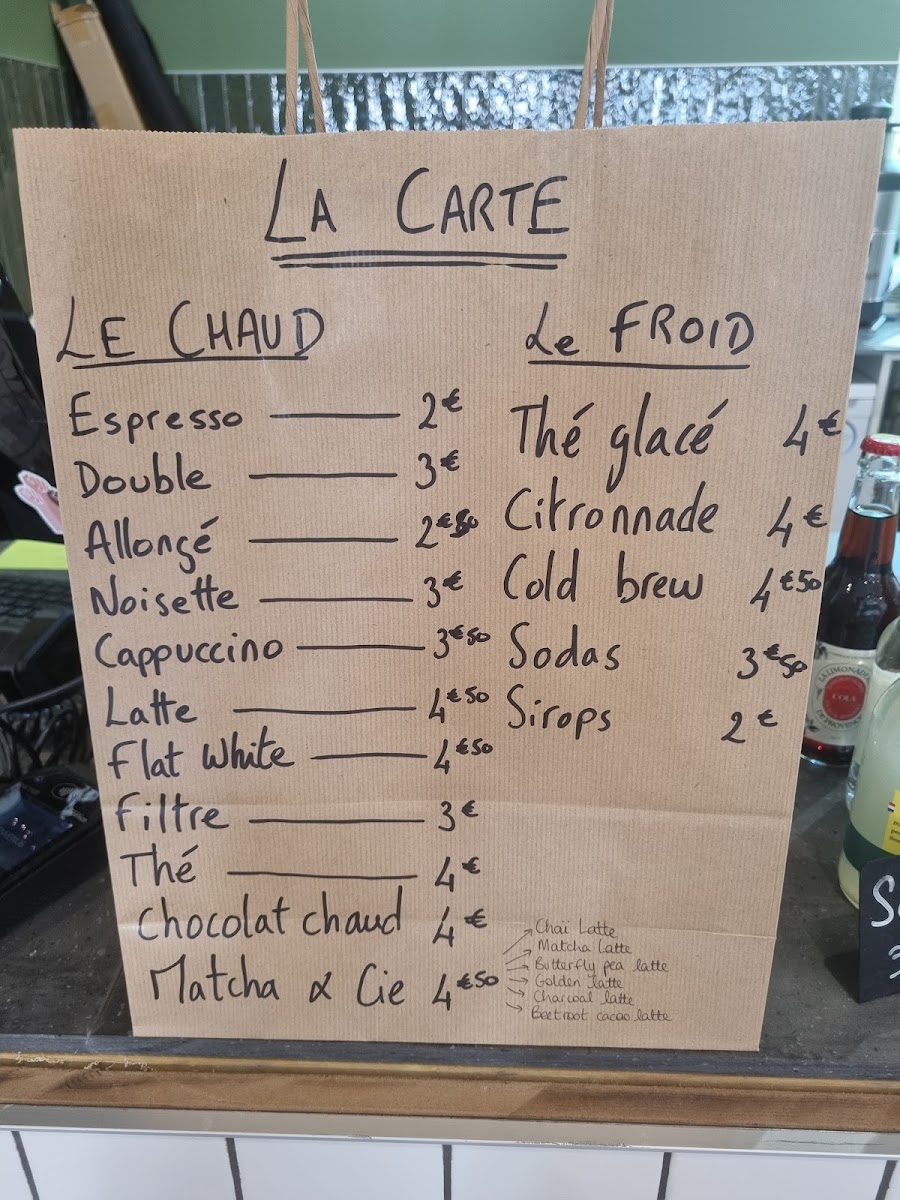 LA CARTE
LE CHAUD
Espresso 2€
Double 3€
Allongé 2€50
Noisette 3€
Cappuccino 3€50
Latte 4€50
Flat White 4€50
Filtre 3€
Thé 4€
Chocolat chaud 4€
Matcha & Cie 4€50
Chaï Latte
Matcha latte
Butterfly pea latte
Golden latte
Charcoal latte
Beetroot cacao latte
Le FROID
Thé glacé 4€
Citronnade 4€
Cold brew 4€50
Sodas 3€50
Sirops 2€
LA LIMONADE
COLA
DE PROVENCE